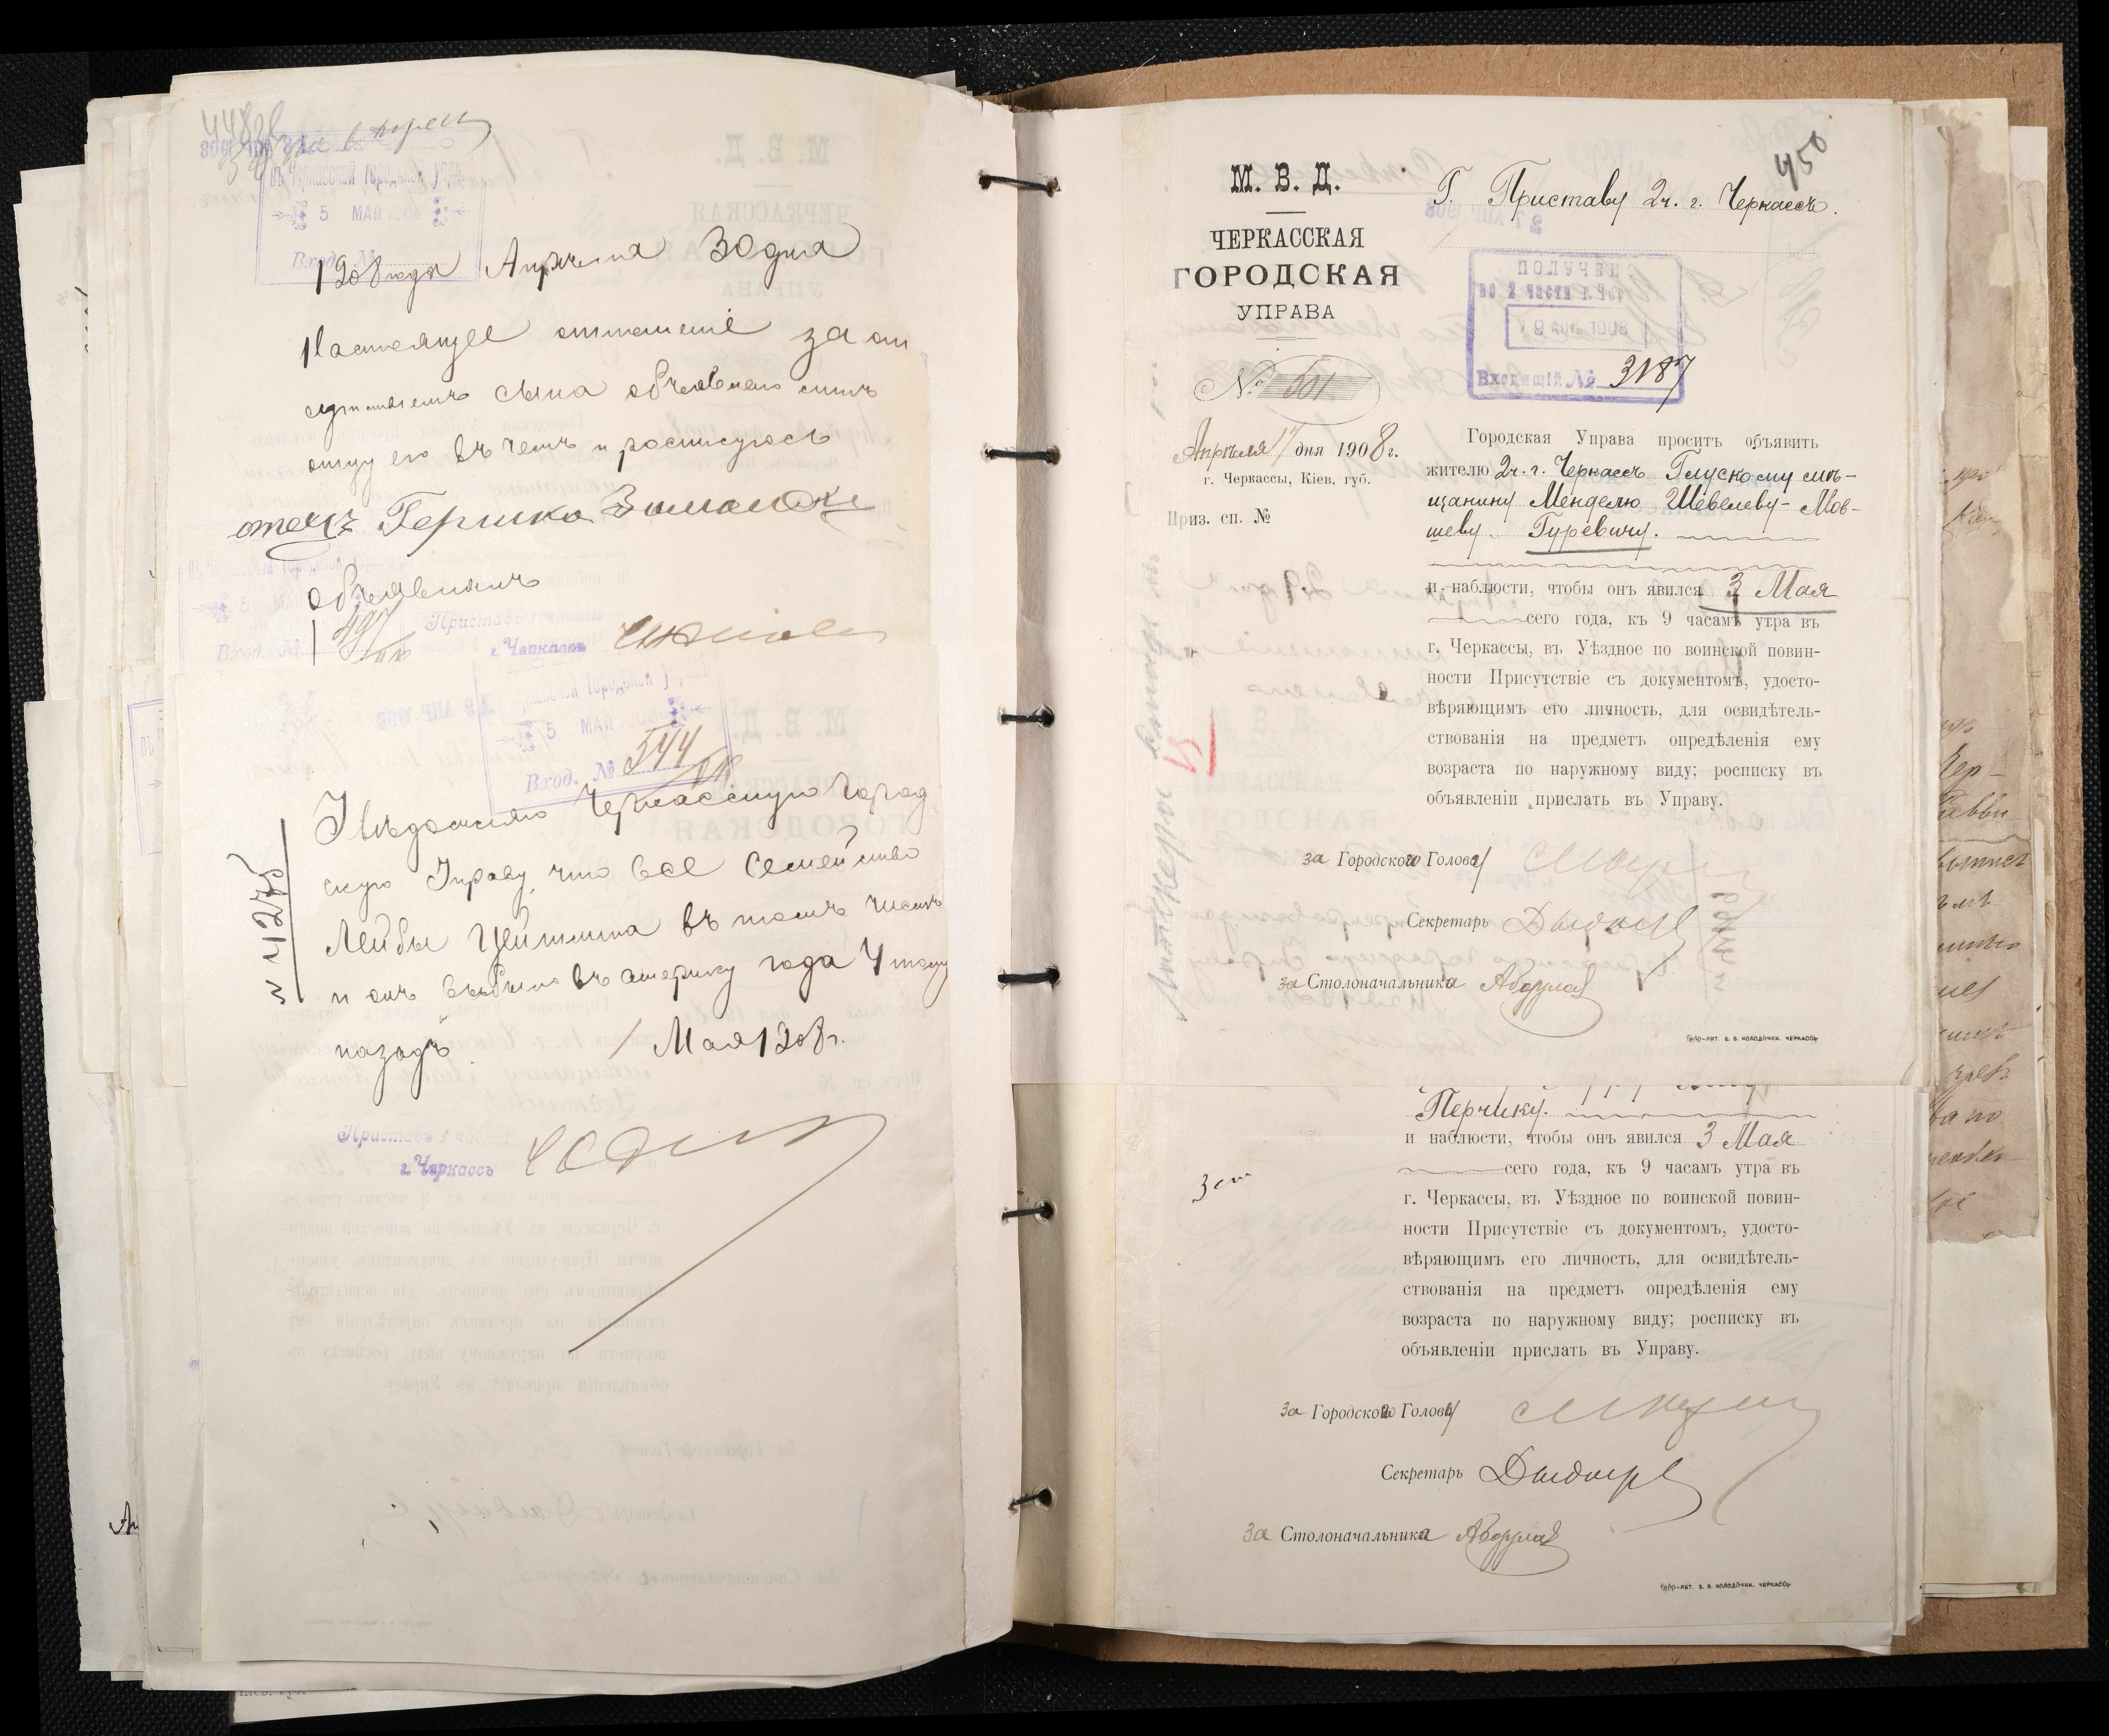 448
въ Черкасской Городской Управ
5 МАЙ 1908
Вход. №
1908 года Апрѣля 30 дня
Настоящее отношеніе за от
сутствіемъ сына объявлено
отцу его въ чемъ и росписуюсь
отецъ Гершко
объявилъ
497
Приставъ 1 части
г. Черкассъ
Городской Управѣ
5 МАЙ 1908
Вход. № 544
№ 4275
Увѣдомляю Черкасскую Город
скую Управу, что все Семейство
Лейбы Цейтлина въ томъ числѣ
и онъ выбыло въ америку года 4 тому
назадъ. 1 Мая 1908 г.
Приставъ 1 части
г. Черкассъ
450
М. В. Д.
ЧЕРКАССКАЯ
ГОРОДСКАЯ
УПРАВА
№ 501
Апрѣля 17 дня 1908 г.
г. Черкассы, Кіев. губ.
Приз. сп. №
Г. Приставу 2 ч. г. Черкассъ.
ПОЛУЧЕНО
во 2 части г. Чер
1908
Входящій № 3187
Городская Управа проситъ объявить
жителю 2 ч. г. Черкассъ Глускому мѣ-
щанину Менделю Шевелеву-Мов-
шеву Гуревичу.
и наблюсти, чтобы онъ явился 3 Мая
сего года, къ 9 часамъ утра въ
г. Черкассы, въ Уѣздное по воинской повин-
ности Присутствіе съ документомъ, удосто-
вѣряющимъ его личность, для освидѣтель-
ствованія на предметъ опредѣленія ему
возраста по наружному виду; росписку въ
объявленіи прислать въ Управу.
за Городского Голову
Секретарь
за Столоначальника
ТИПО-ЛИТ. В. В. КОЛОДОЧКИ. ЧЕРКАССЫ
Перчику.
и наблюсти, чтобы онъ явился 3 Мая
сего года, къ 9 часамъ утра въ
г. Черкассы, въ Уѣздное по воинской повин-
ности Присутствіе съ документомъ, удосто-
вѣряющимъ его личность, для освидѣтель-
ствованія на предметъ опредѣленія ему
возраста по наружному виду; росписку въ
объявленіи прислать въ Управу.
за Городского Голову
Секретарь
за Столоначальника
ТИПО-ЛИТ. В. В. КОЛОДОЧКИ. ЧЕРКАССЫ